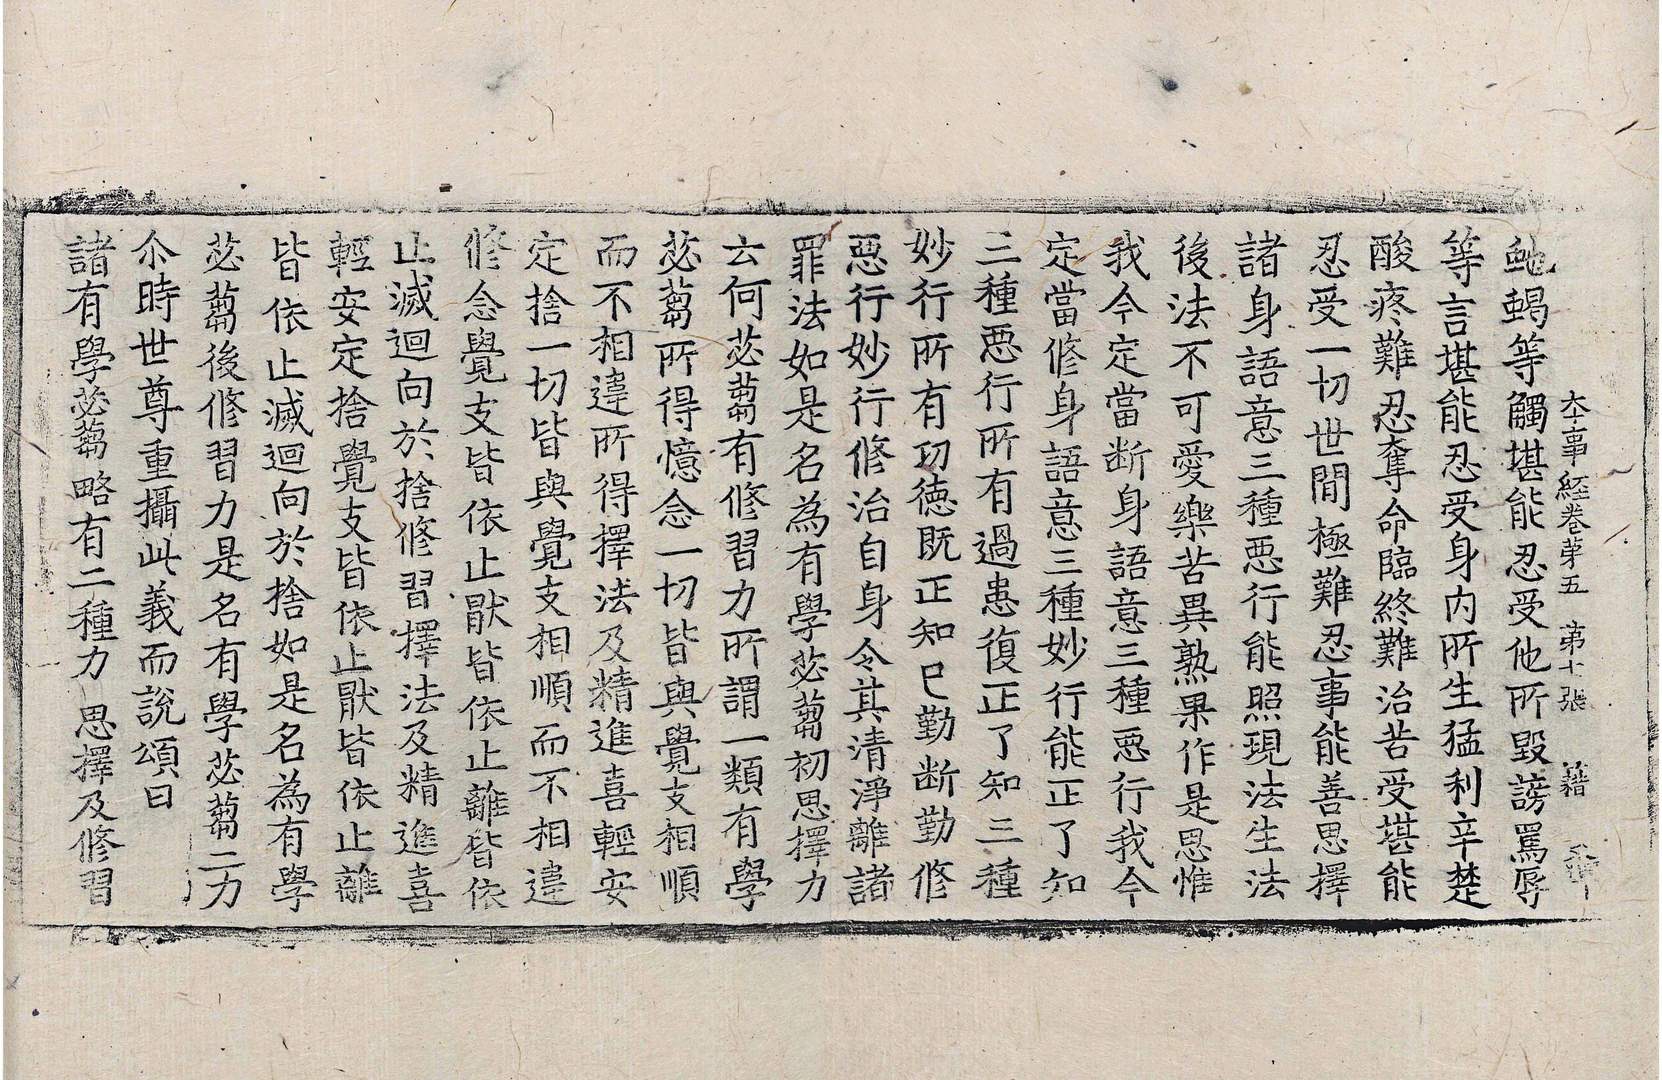 本事経卷苐五　苐十張　籍
虵蝎等觸堪能忍受他所毀謗罵辱
等言堪能忍受身内所生猛利辛楚
酸疼難忍奪命臨終難治苦受堪能
忍受一切世間極難忍事能善思擇
諸身語意三種惡行能照現法生法
後法不可愛樂苦異熟果作是思惟
我今定當断身語意三種惡行我今
定當修身語意三種妙行能正了知
三種惡行所有過患復正了知三種
妙行所有功徳既正知已勤断勤修
惡行妙行修治自身令其清淨離諸
罪法如是名為有學苾蒭初思擇力
云何苾蒭有修習力所謂一類有學
苾蒭所得憶念一切皆與覺支相順
而不相違所得擇法及精進喜輕安
定捨一切皆與覺支相順而不相違
修念覺支皆依止猒皆依止離皆依
止滅迴向於捨修習擇法及精進喜
輕安定捨覺支皆依止猒皆依止離
皆依止滅迴向於捨如是名為有學
苾蒭後修習力是名有學苾蒭二力
尒時世尊重攝此義而説頌曰
諸有學苾蒭略有二種力　思擇及修習